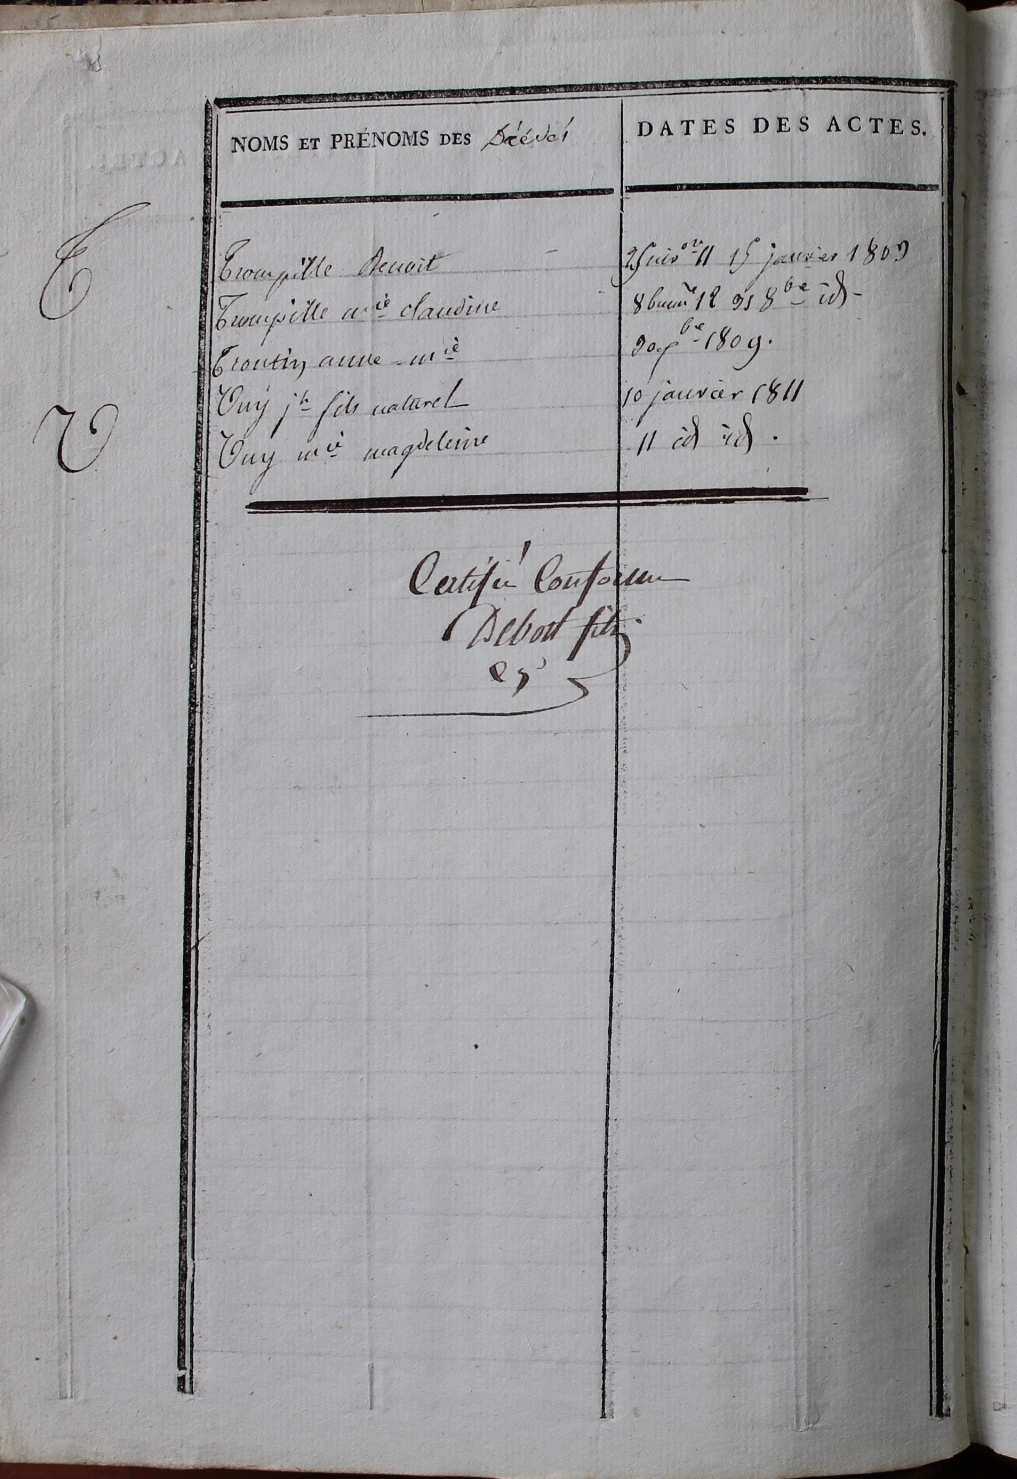 NOMS ET PRÉNOMS DES Décédés
DATES DES ACTES.
T
Trompille Benoit 25 niv.ose 11 15 janvier 1809
Trompille m.ie claudine 8 brum.re 12 31 8.bre id
Troutin anne m.ie 30 1809.
V
Vuy j.h fils naturel 10 janvier 1811
Vuy m.ie magdeleine 11 id id.
Certifié Conforme
Debost fils